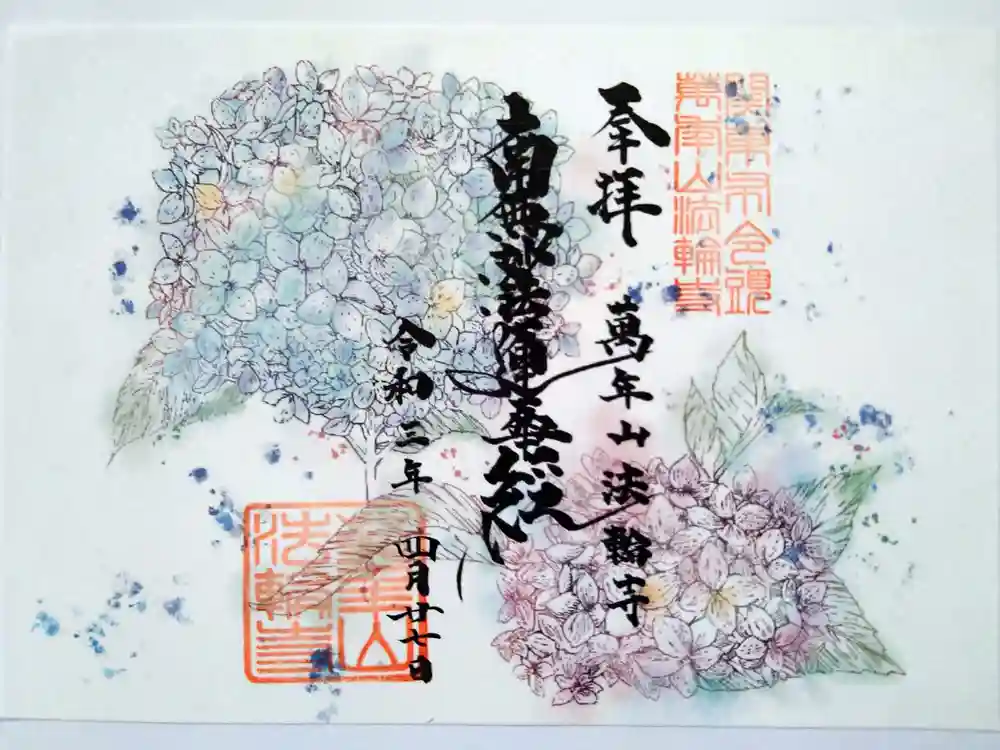 關東布令頭
萬年山法輪寺
奉拝
萬年山法輪寺
南無妙法蓮華経
令和三年
四月廿七日
萬年山
法輪寺